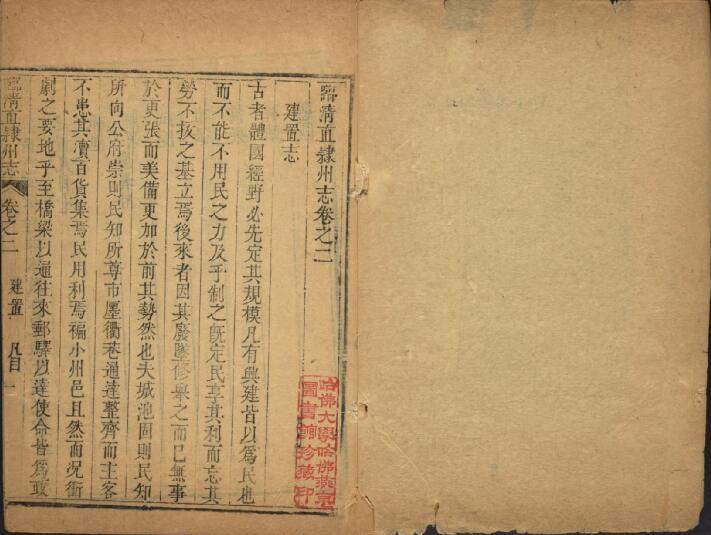 臨清直隸州志卷之二
建置志
古者體國經野必先定其規模凡有興建皆以爲民也
而不能不用民之力及乎制之既定民享其利而忘其
勞不拔之基立焉後來者因其廢墜修舉之而已無事
於更張而美備更加於前其勢然也夫城池固則民知
所向公府崇則民知所尊市廛衢巷通達整齊而主客
不患其瀆百貨集焉民用利焉褊小州邑且然而况衝
劇之要地乎至橋梁以通往來郵驛以達使命皆爲政
臨清直隸州志
卷之二
建置
凡目
一
哈佛大學哈佛燕京
圖書館珍藏印